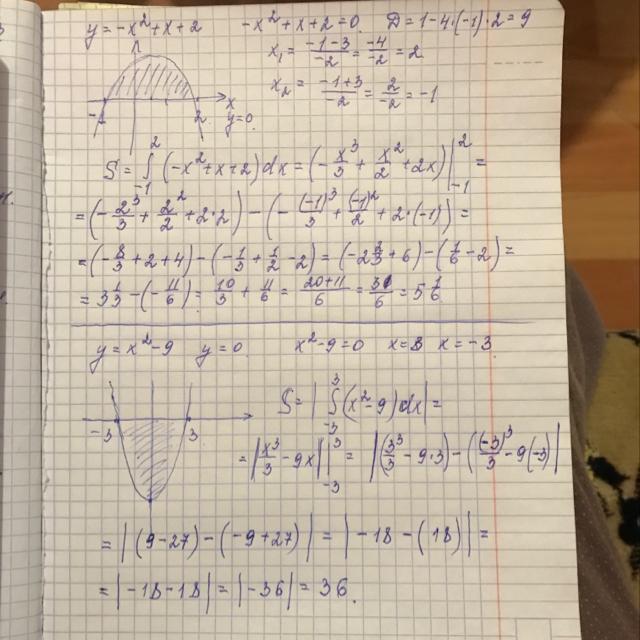 y = -x² + x + 2   -x² + x + 2 = 0.   D = 1 - 4·(-1)·2 = 9
x₁ = (-1-3)/(-2) = (-4)/(-2) = 2
x₂ = (-1+3)/(-2) = 2/(-2) = -1
-1   2   x
y=0.
S = ∫₋₁² (-x² + x + 2) dx = (-x³/3 + x²/2 + 2x) |₋₁² =
= (-2³/3 + 2²/2 + 2·2) - (-(-1)³/3 + (-1)²/2 + 2·(-1)) =
= (-8/3 + 2 + 4) - (-1/3 + 1/2 - 2) = (-2 2/3 + 6) - (1/6 - 2) =
= 3 1/3 - (-11/6) = 10/3 + 11/6 = (20+11)/6 = 31/6 = 5 1/6
y = x² - 9   y = 0.   x² - 9 = 0   x = 3   x = -3
-3   3
S = |∫₋₃³ (x² - 9) dx| =
= |x³/3 - 9x| |₋₃³ = |(3³/3 - 9·3) - ((-3)³/3 - 9(-3)|
= |(9 - 27) - (-9 + 27)| = |-18 - (18)| =
= |-18 - 18| = |-36| = 36.